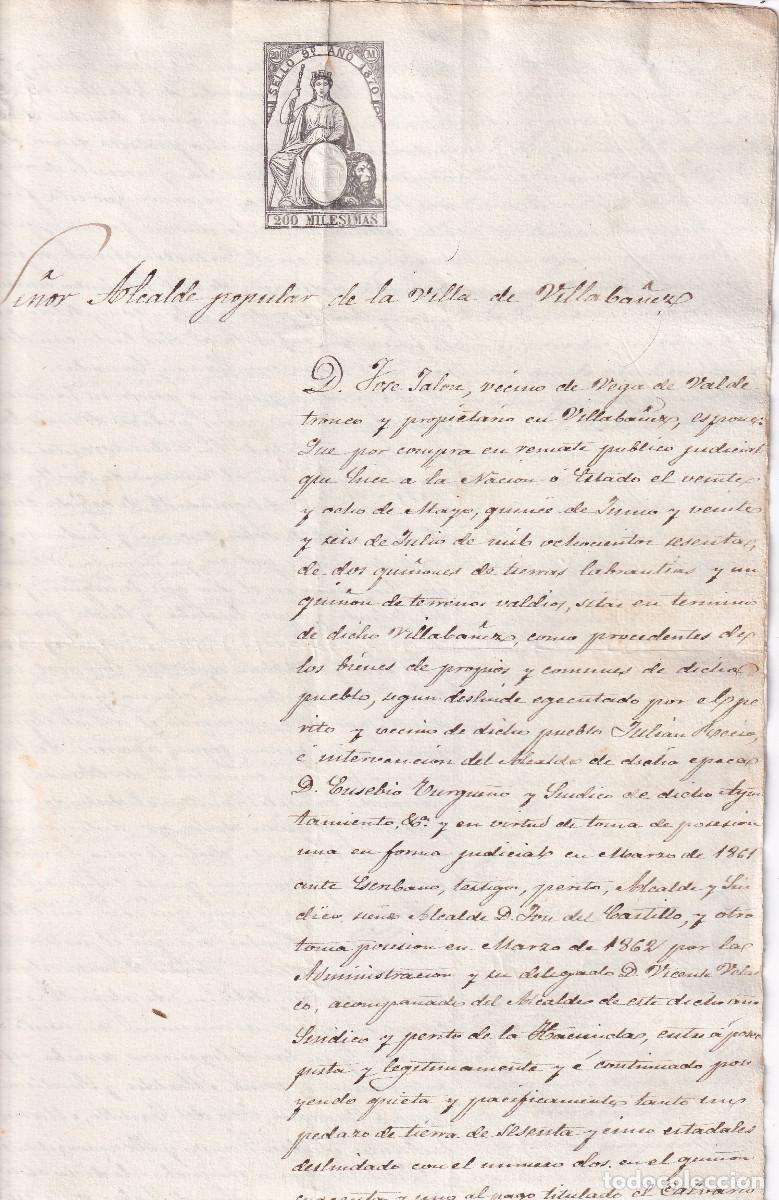 SELLO 9º AÑO 1870
200 M
200 MILESIMAS
Señor Alcalde popular de la Villa de Villabañez
D. Jose Talon, vecino de Vega de Valde
tronco y propietario en Villabañez, espone:
Que por compra en remate publico judicial
que hice a la Nacion ó Estado el veinte
y ocho de Mayo, quince de Junio y veinte
y seis de Julio de mil ochocientos sesenta,
de dos quiñones de tierras labrantias y un
quiñon de terrenos valdios, sitas en termino
de dicho Villabañez, como procedentes de
los bienes de propios y comunes de dicho
pueblo, segun deslinde egecutado por el pe
rito y vecino de dicho pueblo Julián
é intervencion del Alcalde de dicha epoca
D. Eusebio y Sindico de dicho Ayun
tamiento, &a. y en virtud de toma de posesion
una en forma judicial en Marzo de 1861
ante Escribano, testigos, perito, Alcalde y Sin
dico, siendo Alcalde D. José del Castillo, y otra
toma posesion en Marzo de 1862 por la
Administracion y su delegado D. Vicente Velas
co, acompañado del Alcalde de este dicho año
Sindico y perito de la Hacienda, entré á poseer
justa y legitimamente y é continuado pose
yendo quieta y pacificamente tanto un
pedazo de tierra de sesenta y cinco estadales
deslindado con el numero dos en el quiñon
cuarenta y uno al pago titulado el Calvario
todocoleccion